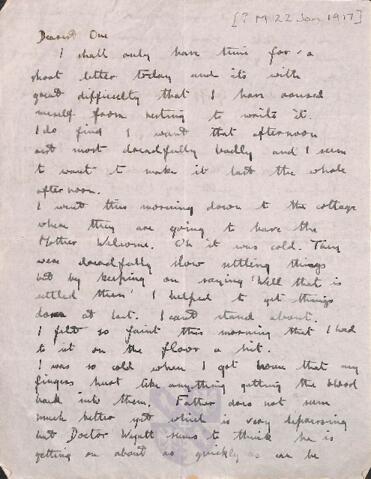 [? M 22 Jan 1917]
Dearest One
I shall only have time for a
short letter today and its with
great difficulty that I have roused
myself from resting to write it.
I do find I want that afternoon
rest most dreadfully badly and I seem
to want to make it last the whole
afternoon.
I went this morning down to the cottage
where they are going to have the
Mother Welcome. Oh it was cold. They
were dreadfully slow settling things
but by keeping on saying 'Well that is
settled then' I helped to get things
done at last. I cant stand about.
I felt so faint this morning that I had
to sit on the floor a bit.
I was so cold when I got home that my
fingers hurt like anything getting the blood
back into them. Father does not seem
much better yet which is very depressing
but Doctor Wyatt seems to think he is
getting on about as quickly as can be